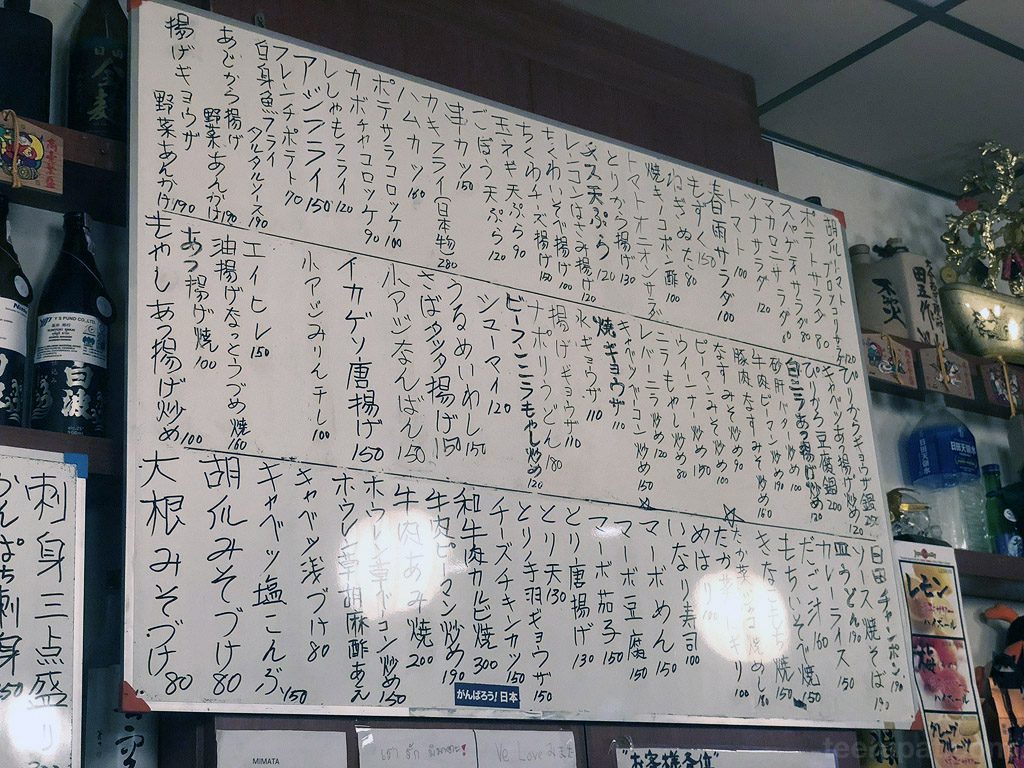 胡瓜トマトコリサラダ 120
ポテトサラダ 80
スパゲティサラダ 80
マカロニサラダ 80
ツナサラダ 120
トマト 100
春雨サラダ 100
もずく 150
ねぎぬた 80
焼きエリンギポン酢 100
トマトオニオンサラダ
とりから揚げ 130
ナス天ぷら 120
レンコンはさみ揚げ 120
ちくわいそべ揚げ 100
ちくわチーズ揚げ 150
玉ネギ天ぷら 90
ごぼう天ぷら 120
串カツ 150
カキフライ(日本物) 280
ハムカツ 160
ポテサラコロッケ 100
カボチャコロッケ 90
ししゃもフライ 120
アジフライ 150
フレンチポテト 70
白身魚フライ タルタルソース 190
あじから揚げ 野菜あんかけ 190
揚げギョウザ 野菜あんかけ 190
ぴりからギョウザ鍋 250
キャベツあつ揚げ炒め 120
ぴりから豆腐鍋 200
白ニラあつ揚げ炒め 120
砂肝バター炒め 100
牛肉ピーマン炒め 190
豚肉なすみそ炒め 160
なすみそ炒め 90
ピーマンみそ炒め 90
ウインナー炒め 80
レバーニラ炒め 120
キャベツベーコン炒め 150
焼ギョウザ 110
水ギョウザ 110
揚げギョウザ 110
ナポリうどん 180
ビーフンニラもやし炒め 120
シューマイ 120
うるめいわし 150
さばタツタ揚げ 150
小アジなんばん 150
イカゲソ唐揚げ 150
小アジみりんチし 100
エイヒレ 150
油揚げなっとうづめ焼 160
あつ揚げ焼 100
もやしあつ揚げ炒め 100
日田チャンポン 190
ソース焼そば 190
皿うどん 190
カレーライス 150
だご汁 160
もちいそべ焼 150
きなこもち 150
たか菜焼めし 180
たか菜ニギリ 100
めはり 100
いなり寿司 100
マーボめん 150
マーボ豆腐 150
マーボ茄子 150
とり唐揚げ 130
とり天 130
とり手羽ギョウザ 150
チーズチキンカツ 150
和牛肉カルビ焼 300
牛肉ピーマン炒め 190
牛肉あみ焼 200
ホウレン草ベーコン炒め 150
ホウレン草胡麻酢あえ
キャベツ浅づけ 80
キャベツ塩こんぶ 150
胡瓜みそづけ 80
大根みそづけ 80
がんばろう!日本
刺身三点盛り
かんぱち刺身
レモン
ハイボール
梅
ハイボール
グレープフルーツ
MIMATA
Ve Love
"お客様各位"
白波
Y'S FUND CO.,LTD.